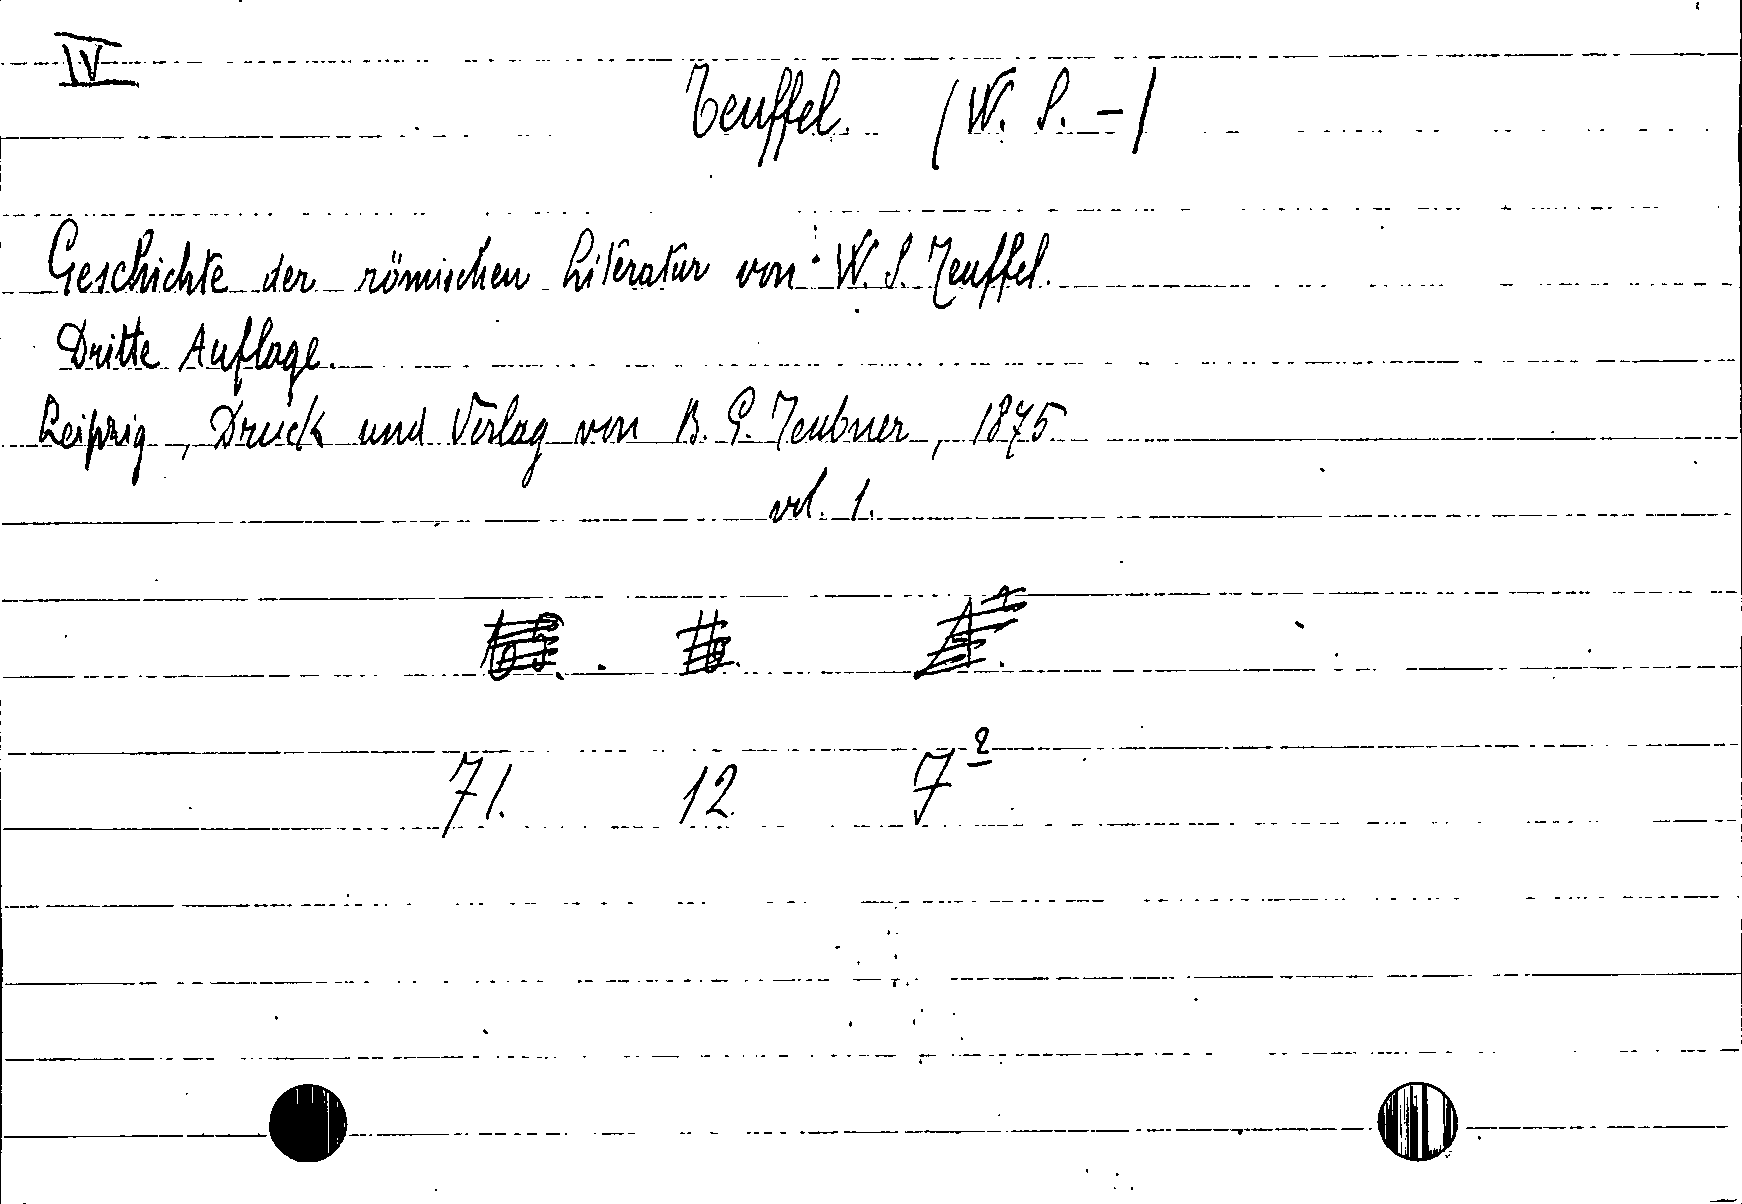 IV
Teuffel. (W. S. -)
Geschichte der römischen Literatur von W. S. Teuffel.
Dritte Auflage.
Leipzig, Druck und Verlag von B. G. Teubner, 1875
vol. 1.
71. 12. 7²